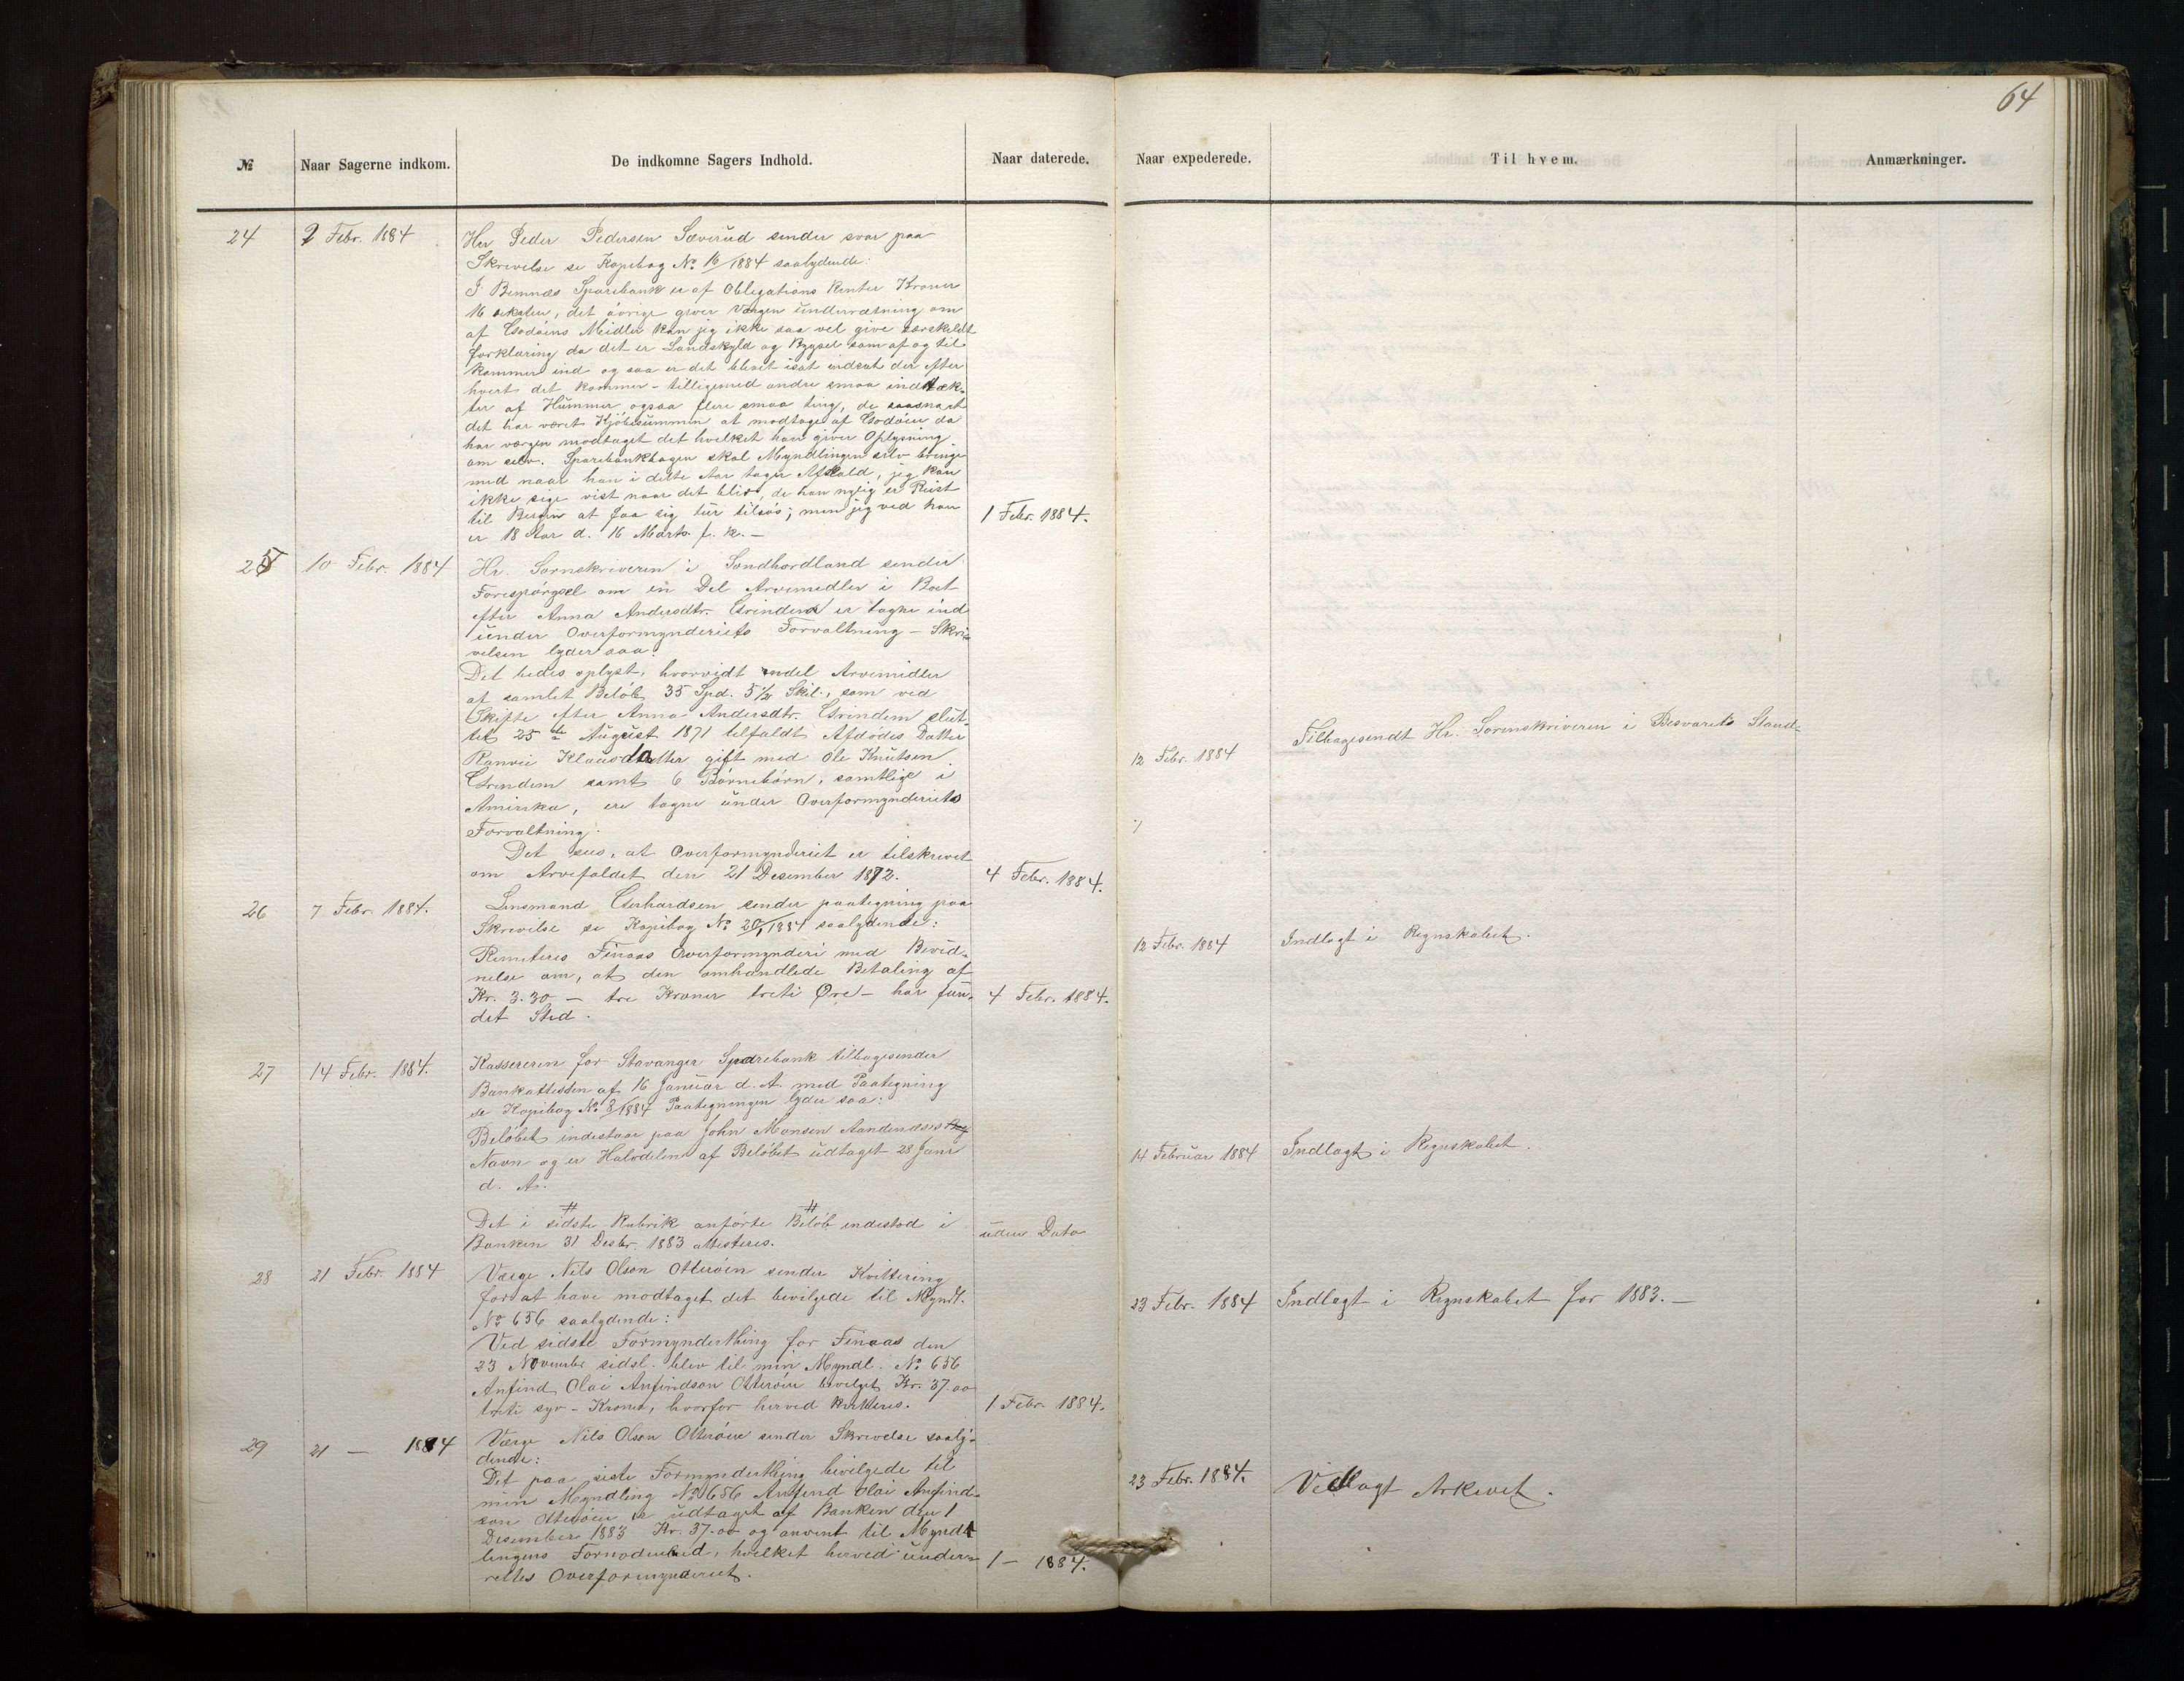 64
№ Naar Sagerne indkom. De indkomne Sagers Indhold. Naar daterede. Naar expederede. Til hvem. Anmærkninger.
24 2 Febr. 1884 Hr Peder Pedersen Sæverud sender svar paa
Skrivelse se Kopibog No 16/1884 saalydende:
I Bremnæs Sparebank er af Obligations Renter Kroner
16 seksten, det øvrige giver Værgen underrætning om
af Godøens Meidler kan jeg ikke saa vel give særskildt
forklaring da det er Landskyld og Bygsel som af og til
kommer ind og saa er det blevet isat indsat der efter
hvert det kommer - tilligemed andre smaa indtæk-
ter af Hummer, ogsaa flere smaa ting, de saasnart
det har været Kjøbesummen at modtage af Godøen da
har værgen modtaget det hvilket han giver Oplysning
om selv. Sparebankbogen skal Myndlingen selv bringe
med naar han i dette Aar tager Afskald, jeg kan
ikke sige vist naar det blir, de han nylig er Reist
til Bergen at faa sig tur tilsøs; men jeg ved han
er 18 Aar d. 16 Marts f. k. — 1 Febr. 1884.
25 10 Febr. 1884 Hr. Sornskriveren i Søndhordland sender
Forespørgsel om en Del Arvemidler i Boet
efter Anna Andersdtr. Grindem er tagne ind
under Overformynderiets Forvaltning - Skri-
velsen lyder saa:
Det bedes oplyst, hvorvidt endel Arvemidler
af samlet Beløb 35 Spd. 5 1/2 Skil., som ved
Skifte efter Anna Andersdtr. Grindem slut-
tet 25de August 1871 tilfaldt Afdødes Datter
Ranvei Klausdatter gift med Ole Knutsen
Grindem samt 6 Børnebørn, samtlige i
Amerika, ere tagne under Overformynderiets
Forvaltning.
Det sees, at Overformynderiet er tilskrevet
om Arvefaldet den 21 Desember 1872. 4 Febr. 1884.
12 Febr. 1884 Tilbagesendt Hr. Sorenskriveren i Besvaret Stand-
26 7 Febr. 1884. Lensmand Gerhardsen sender paategning paa
Skrivelse se Kopibog No 20/1884 saalydende:
Remiteres Finaas Overformynderi med Bevid-
nelse om, at den omhandlede Betaling af
Kr. 3.30 — tre Kroner treti Øre — har fun-
det Sted. 4 Febr. 1884.
12 Febr. 1884 Indlagt i Regnskabet.
27 14 Febr. 1884. Kassereren for Stavanger Sparebank tilbagesender
Bankattesten af 16 Januar d. A. med Paategning
se Kopibog No 8/1884 Paategningen lyder saa:
Beløbet indestaar paa John Monsen Aandenæses
Navn og er Halvdelen af Beløbet udtaget 28 Janr
d. A.
Det i sidste Rubrik anførte Beløb indestod i
Banken 31 Desbr. 1883 attesteres. uden Dato
14 Februar 1884 Indlagt i Regnskabet.
28 21 Febr. 1884 Værge Nils Olson Otterøen sender Kvittering
for at have modtaget det bevilgede til Myndl.
No 656 saalydende:
Ved sidste Formynderthing for Finaas den
23 November sidsl. blev til min Myndl. No 656
Anfind Olai Anfindson Otterøen bevilget Kr. 37.00
treti syv - Kroner, hvorfor herved kvitteres. 1 Febr. 1884.
23 Febr. 1884 Indlagt i Regnskabet for 1883. —
29 21 — 1884 Værge Nils Olson Otterøen sender Skrivelse saaly-
dende:
Det paa siste Formynderthing bevilgede til
min Myndling No 656 Anfind Olai Anfind-
son Otterøen er udtaget af Banken den 1
Desember 1883 Kr. 37.00 og anvent til Mynd-
lingens Fornodenhed, hvilket herved under-
rettes Overformynderiet. 1 — 1884.
23 Febr. 1884. Vedlagt Arkivet.